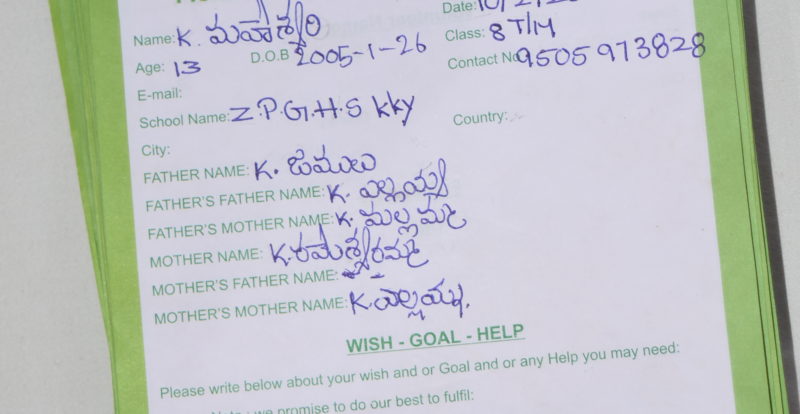 Date: 10/2/20
Name: K. మహేశ్వరి
Class: 8 T/M
Age: 13 D.O.B 2005-1-26
Contact No 9505973828
E-mail:
School Name: Z.P.G.H.S KKy
City: Country:
FATHER NAME: K. జమలు
FATHER'S FATHER NAME: K. ఎల్లయ్య
FATHER'S MOTHER NAME: K. మల్లమ్మ
MOTHER NAME: K. రామేశ్వరమ్మ
MOTHER'S FATHER NAME:
MOTHER'S MOTHER NAME: K. ఎల్లయ్య.
WISH - GOAL - HELP
Please write below about your wish and or Goal and or any Help you may need:
we promise to do our best to fulfil: